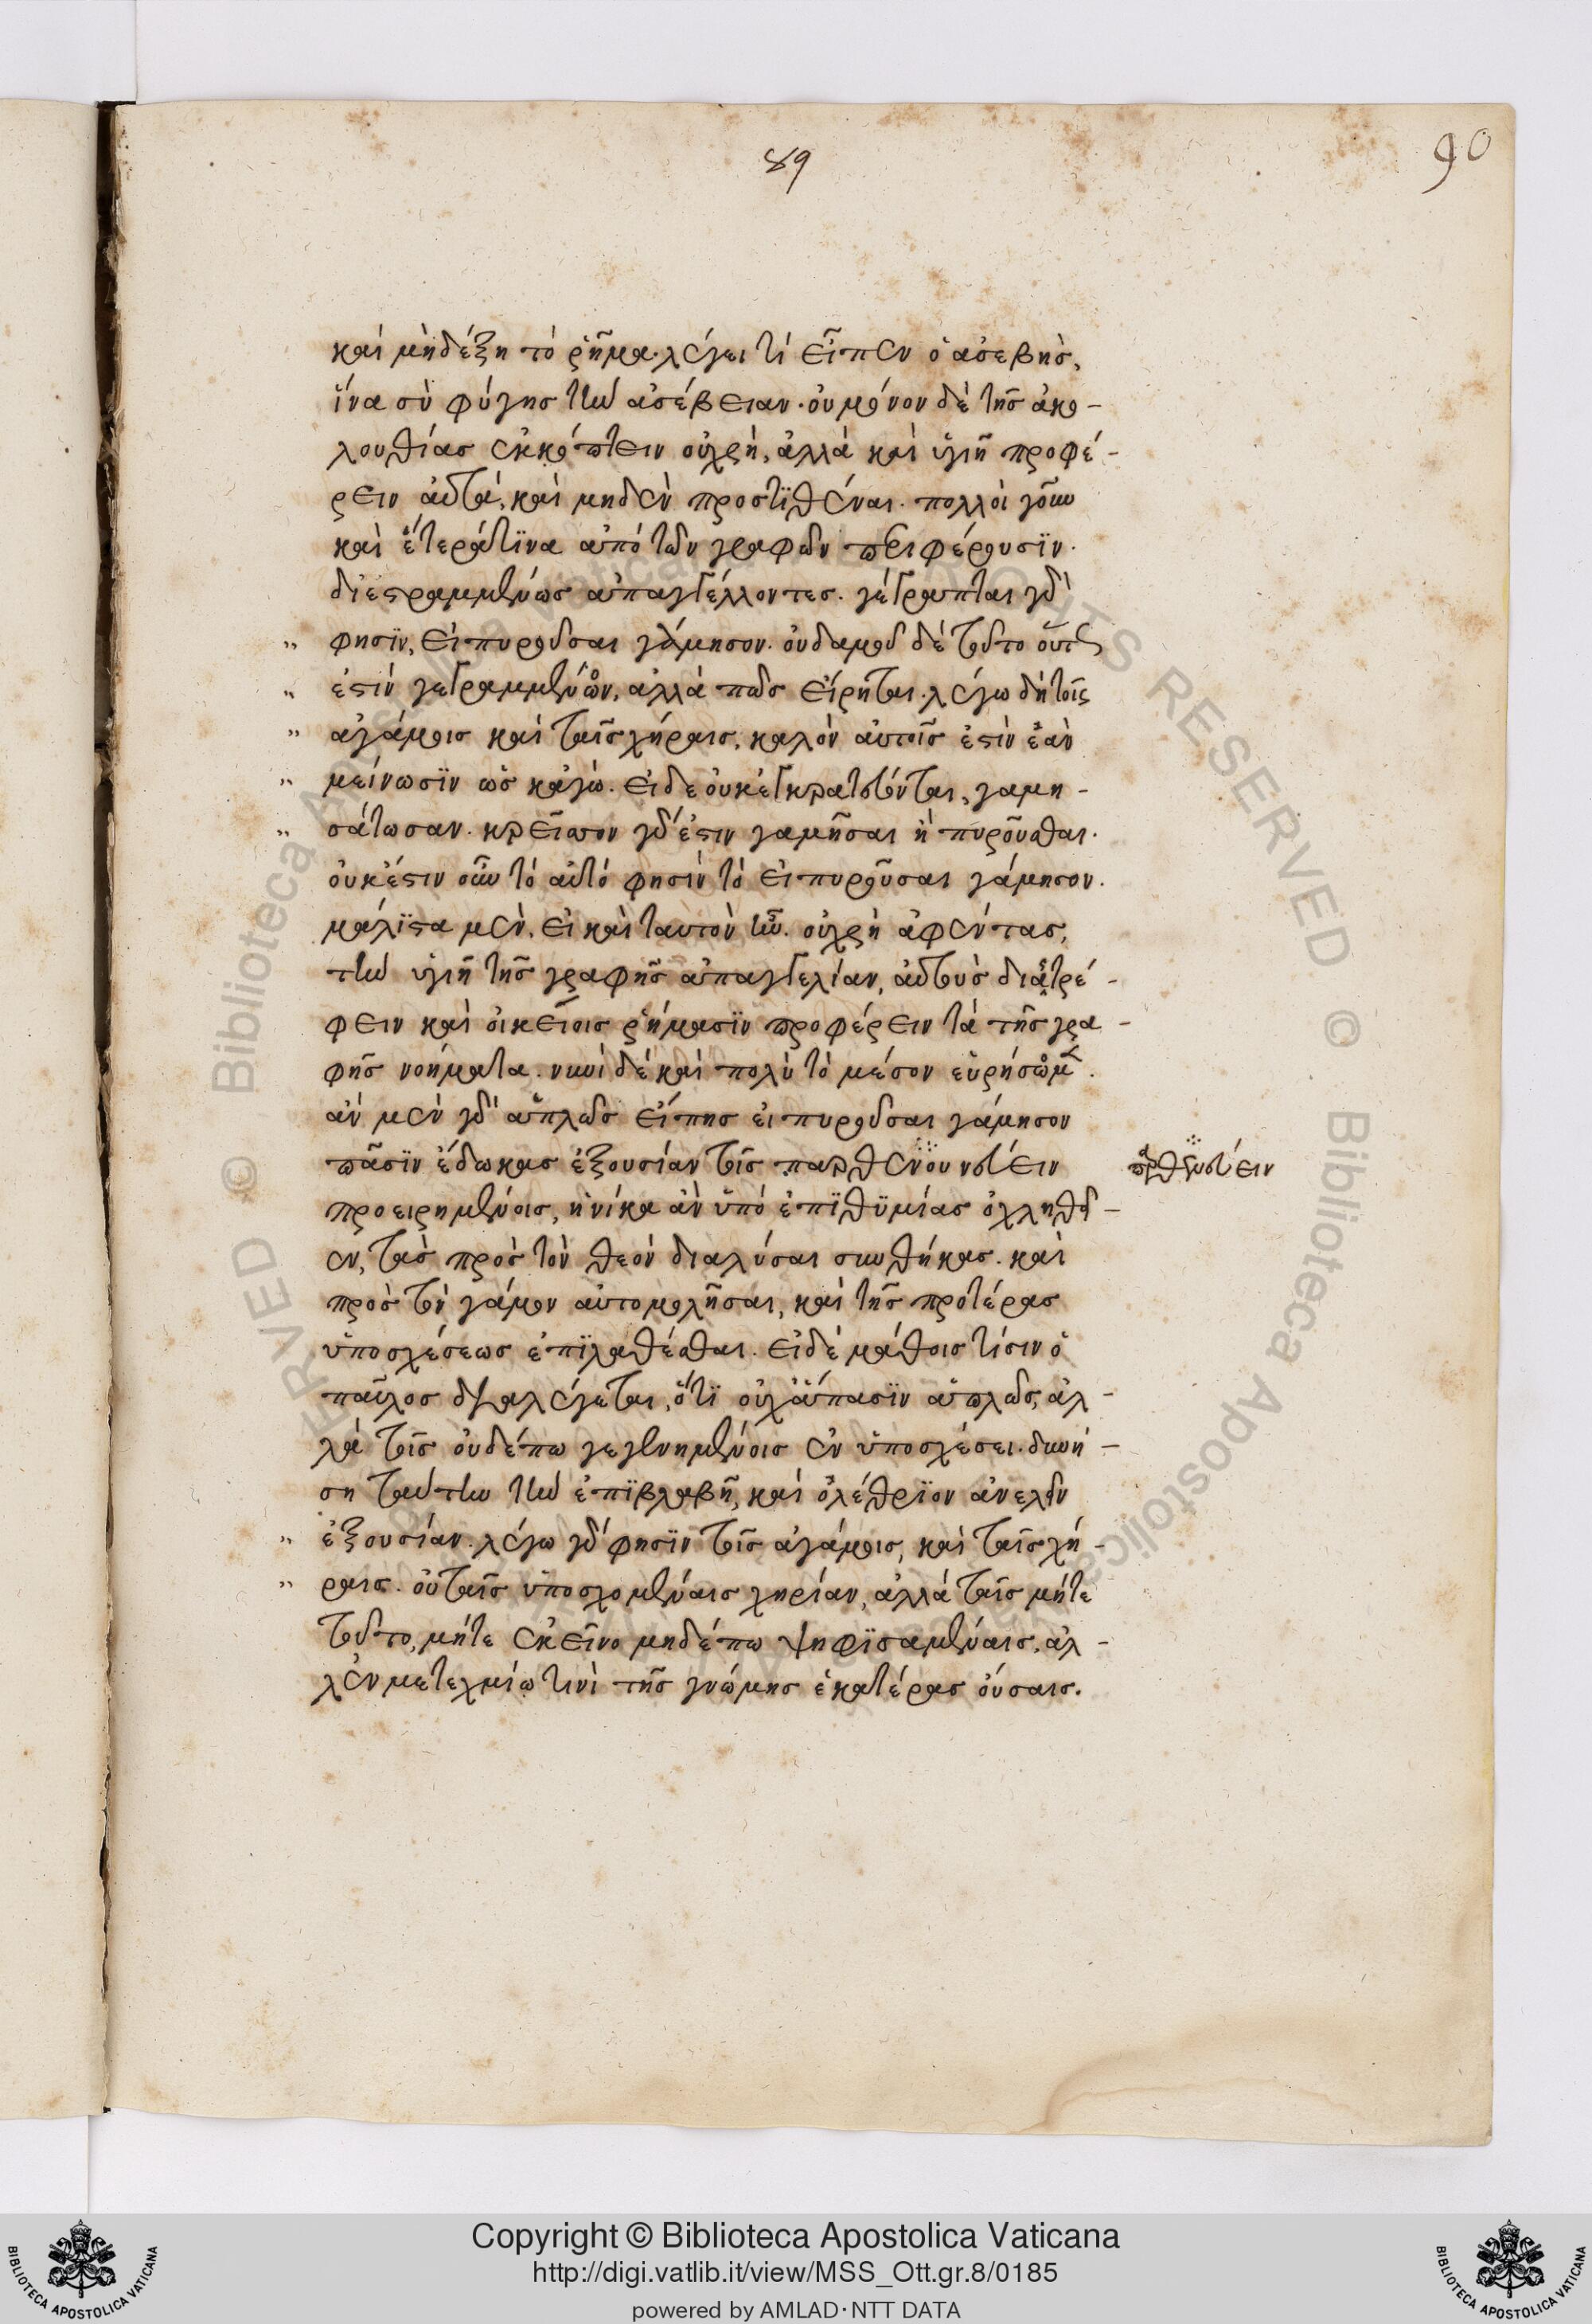 89
90
καὶ μὴ δέξη τὸ ῥῆμα· λέγει τί εἶπεν ὁ ἀσεβὴς,
ἵνα σὺ φύγης τὴν ἀσέβειαν· οὐ μόνον δὲ τῆς ἀκο-
λουθίας ἐκκόπτειν οὐ χρὴ, ἀλλὰ καὶ ὑγιῆ προφέ-
ρειν αὐτὰ, καὶ μηδὲν προστϊθέναι. πολλοὶ γοῦν
καὶ ἕτερά τϊνα ἀπὸ τῶν γραφῶν περιφέρουσϊν.
διεστραμμένως ἀπαγγέλλοντες. γέγραπται γὰρ
„ φησϊν, εἰ πυροῦσαι γάμησον. οὐδαμοῦ δὲ τοῦτο οὕτως
„ ἐστὶν γεγραμμένον, ἀλλὰ πῶς εἴρηται· λέγω δὴ τοῖς
„ ἀγάμοις καὶ ταῖς χήραις, καλὸν αὐτοῖς ἐστὶν ἐὰν
„ μείνωσϊν ὡς κἀγώ. εἰ δε οὐκ ἐγκρατεύονται, γαμη-
„ σάτωσαν. κρεῖττον γάρ ἐστιν γαμῆσαι ἢ πυροῦσθαι.
οὐκ ἔστιν οὖν τὸ αὐτὸ φησὶν τὸ εἰ πυροῦσαι γάμησον.
μάλϊστα μὲν, εἰ καὶ ταυτὸν ἦν. οὐ χρὴ ἀφέντας,
τὴν ὑγιῆ τῆς γραφῆς ἀπαγγελίαν, αὐτοὺς διαστρέ-
φειν καὶ οἰκείοις ῥήμασϊν προφέρειν τὰ τῆς γρα-
φῆς νοήματα. νυνὶ δὲ καὶ πολὺ τὸ μέσον εὑρήσομεν.
ἂν μὲν γὰρ ἁπλῶς εἴπης εἰ πυροῦσαι γάμησον
πᾶσϊν ἔδωκας ἐξουσίαν τοῖς παρθενου νεύειν
παρθενεύειν
προειρημένοις, ἡνίκα ἂν ὑπὸ ἐπϊθϋμίας ὀχληθῶ-
ϲν, τὰς πρὸς τὸν θεὸν διαλύσαι συνθήκας. καὶ
πρὸς τὸν γάμον αὐτομολῆσαι, καὶ τῆς προτέρας
ὑποσχέσεως ἐπϊλαθέσθαι. εἰ δὲ μάθοις τίσιν ὁ
παῦλος διαλέγεται, ὅτϊ οὐχ ἅπασϊν ἁπλῶς, ἀλ-
λὰ τοῖς οὐδέπω γεγενημένοις ἐν ὑποσχέσει. δυνή-
ση ταύτην τὴν ἐπϊβλαβῆ, καὶ ὀλέθρϊον ἀνελεῖν
„ ἐξουσίαν. λέγω γάρ φησϊν τοῖς ἀγάμοις, καὶ ταῖς χή-
„ ραις. οὐ ταῖς ὑποσχομέναις χηρίαν, ἀλλὰ ταῖς μήτε
τοῦτο, μήτε ἐκεῖνο μηδέπω ψηφϊσαμέναις. ἀλ-
λ' ἐν μετεχμίῳ τινὶ τῆς γνώμης ἑκατέρας οὔσαις.
© Biblioteca Apostolica Vaticana ALL RIGHTS RESERVED
Copyright © Biblioteca Apostolica Vaticana
http://digi.vatlib.it/view/MSS_Ott.gr.8/0185
powered by AMLAD·NTT DATA
BIBLIOTECA APOSTOLICA VATICANA
BIBLIOTECA APOSTOLICA VATICANA